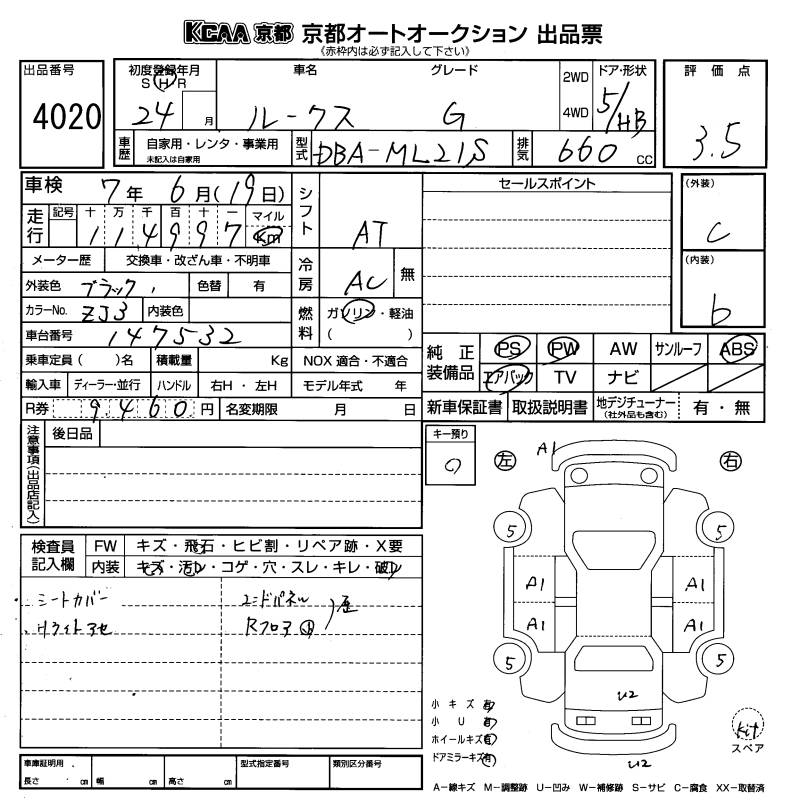 KCAA 京都 京都オートオークション 出品票
(赤枠内は必ず記入して下さい)
出品番号
4020
初度登録年月
S H R
24 月
車名
ルークス
グレード
G
2WD
4WD
ドア・形状
5/HB
評価点
3.5
車歴
自家用・レンタ・事業用
未記入は自家用
型式
DBA-ML21S
排気
660 CC
車検 7年 6月(19日)
走行
記号 十 万 千 百 十 一 マイル
1 1 4 9 9 7 km
メーター歴 交換車・改ざん車・不明車
外装色 ブラック 色替 有
カラーNo. ZJ3 内装色
車台番号 147532
乗車定員( )名 積載量 Kg
輸入車 ディーラー・並行 ハンドル 右H・左H
R券 9,460 円 名変期限 月 日
シフト
AT
冷房
AC 無
燃料
ガソリン・軽油
( )
NOX 適合・不適合
モデル年式 年
セールスポイント
(外装)
C
(内装)
b
純正装備品
PS PW AW サンルーフ ABS
エアバック TV ナビ
新車保証書 取扱説明書 地デジチューナー (社外品も含む) 有・無
注意事項(出品店記入)
後日品
キー預り
0
左 右
検査員記入欄
FW キズ・飛石・ヒビ割・リペア跡・X要
内装 キズ・汚れ・コゲ・穴・スレ・キレ・破れ
シートカバー
Hライトアセ
エンドパネル
Rフロア
歪
A1
5 5
A1 A1
A1 A1
5 5
U2
U2
小キズ 有
小U 有
ホイールキズ 有
ドアミラーキズ 有
kit
スペア
車庫証明用
長さ cm 幅 cm 高さ cm
型式指定番号
類別区分番号
A-線キズ M-調整跡 U-凹み W-補修跡 S-サビ C-腐食 XX-取替済